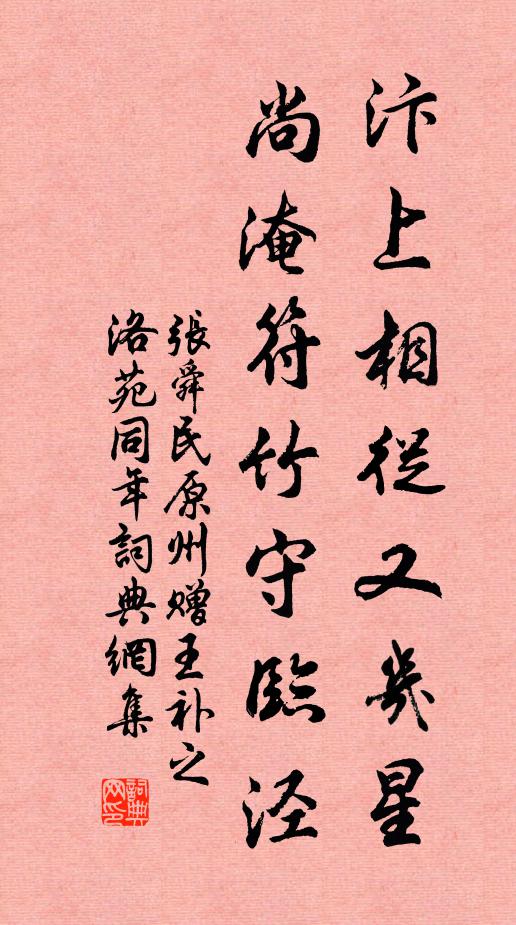 汴上相從又幾星
尚淹符竹守臨泾
張舜民原州赠王补之
洛苑同年詞典網集
詞典网印